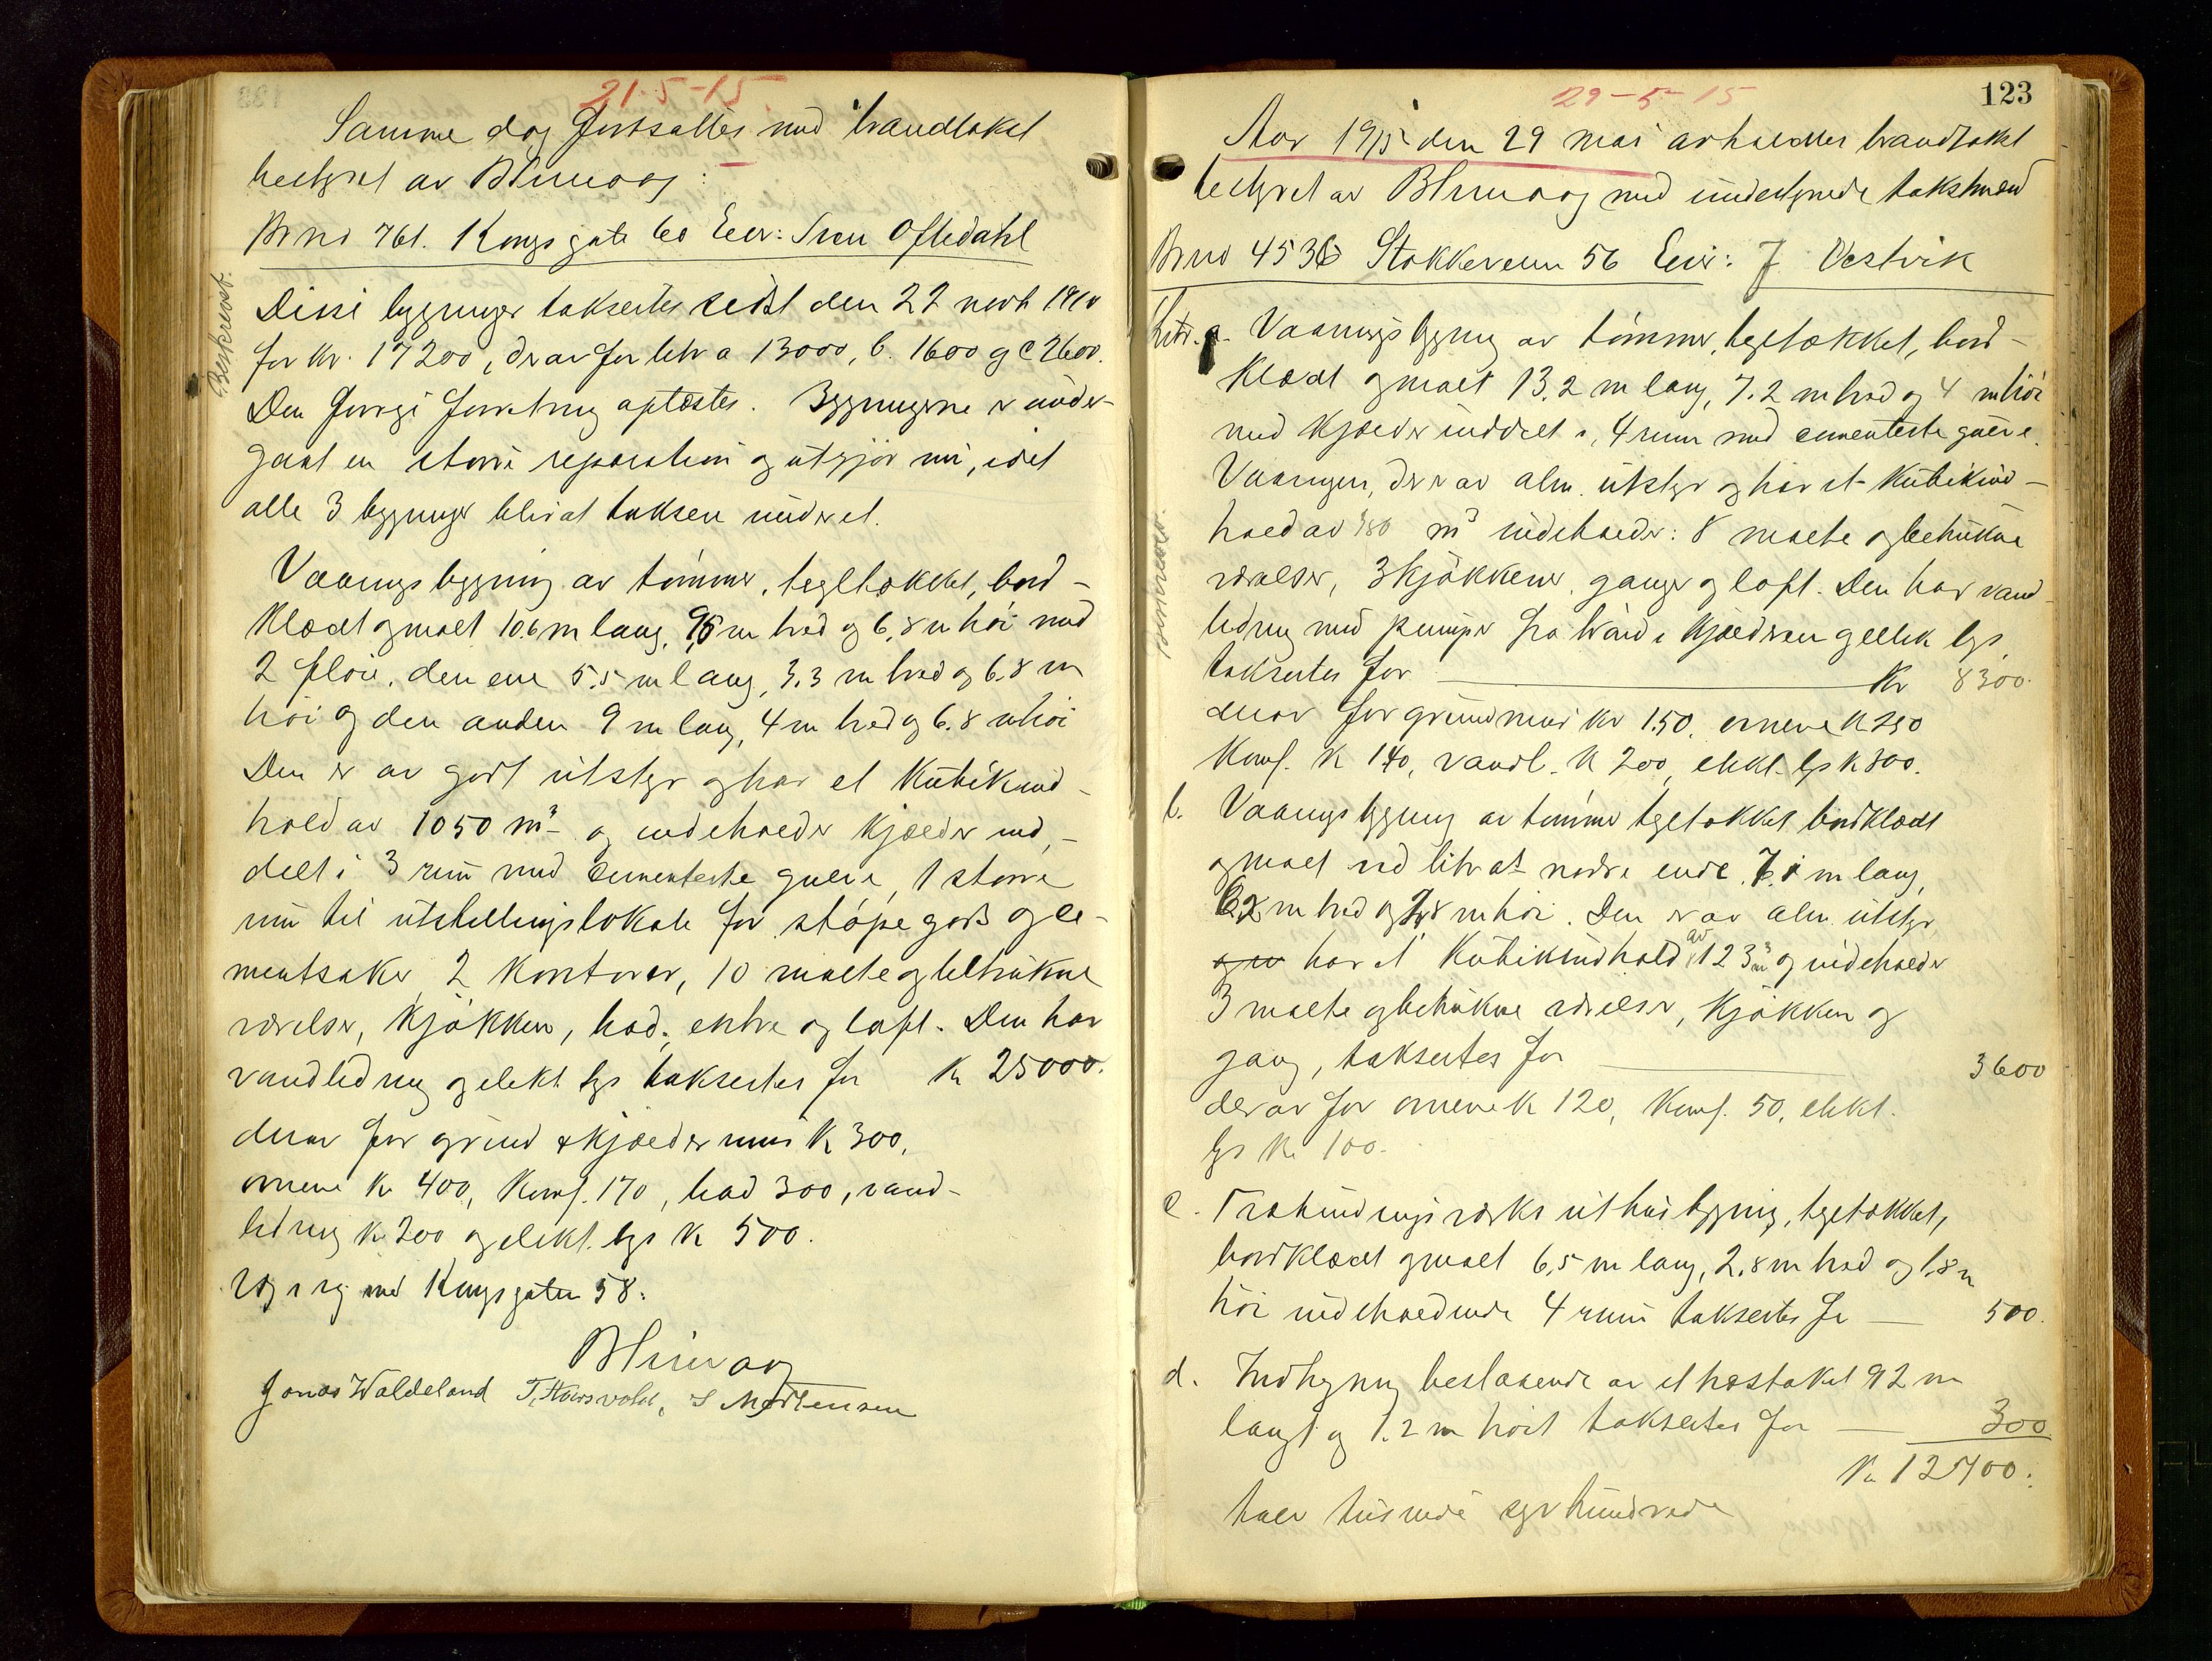 21-5-15.
Samme dag fortsattes med brandtakst
bestyret av BHinvaag:
Br no 761. Kongsgate 60 Eier: Sven Oftedahl
Beskrevet.
Disse bygninger takseertes sidst den 22 novb 1910
for Kr. 17200, derav for litr a 13000, b. 1600 og c 2600.
Den forrige forretning oplæstes. Bygningerne er under-
gaat en større reparation og utgjør nu, idet
alle 3 bygninger blir at taksere under et.
Vaaningsbygning av tømmer, tegltækket, bord-
klædt og malt 10.6 m lang, 9,6 m bred og 6,8 m høi med
2 fløie, den ene 5,5 m lang, 3.3 m bred og 6.8 m
høi og den anden 9 m lang, 4 m bred og 6.8 m høi
Den er av godt utstyr og har et kubikind-
hold av 1050 m³ og indeholder kjælder ind-
delt i 3 rum med cementerte gulve, 1 større
rum til utstillingslokale for støpegods og ce-
mentsaker, 2 kontorer, 10 malte og betrukne
værelser, kjøkken, bad, entre og loft. Den har
vandledning og elekt lys takseertes for Kr 25000.
derav for grund & kjældermur Kr 300,
ovnene Kr 400, Komf. 170, bad 300, vand-
ledning Kr 200 og elekt. lys Kr 500.
Vei og med Kongsgaten 58.
BHinvaag
Jonas Waldeland T. Hausvold, S Mortensen
123
29-5-15
Aar 1915 den 29 mai avholdtes brandtakst
bestyret av BHinvaag med undertegnede takstmænd
Br no 4536 Stokkeveien 56 Eier: J Vestvik
Litr. a. Vaaningsbygning av tømmer, tegltækket, bord-
klædt og malt 13.2 m lang, 7.2 m bred og 4 m høi
med kjælder inddelt i 4 rum med cementerte gulve.
Vaaningen, der er av alm. utstyr og har et kubikind-
hold av 380 m³ indeholder: 8 malte og betrukne
værelser, 3 kjøkkener, ganger og loft. Den har vand-
ledning med pumpe fra brønd i kjælderen og elekt lys
takseertes for Kr 8300.
derav for grundmur kr 150. ovnene Kr 250
Komf. Kr 140, vandl. Kr 200, elekt. lys Kr 300.
b. Vaaningsbygning av tømmer tegltækket bordklædt
og malt ved litr a's nordre ende 7.1 m lang,
6,2 m bred og 2,8 m høi. Den er av alm. utstyr
har et kubikindhold av 123 m³ og indeholder
3 malte og betrukne værelser, kjøkken og
gang, takseertes for 3600
derav for ovnene Kr 120, Komf. 50, elekt.
lys Kr 100.
c. Træbindingsverks uthusbygning, tegltækket,
bordklædt og malt 6,5 m lang, 2.8 m bred og 1,8 m
høi indeholdende 4 rum takseertes for 500.
d. Indhegning bestaaende av et hæstaket 92 m
langt og 1.2 m høit takseertes for 300
Kr 12700.
tolv tusinde syv hundrede